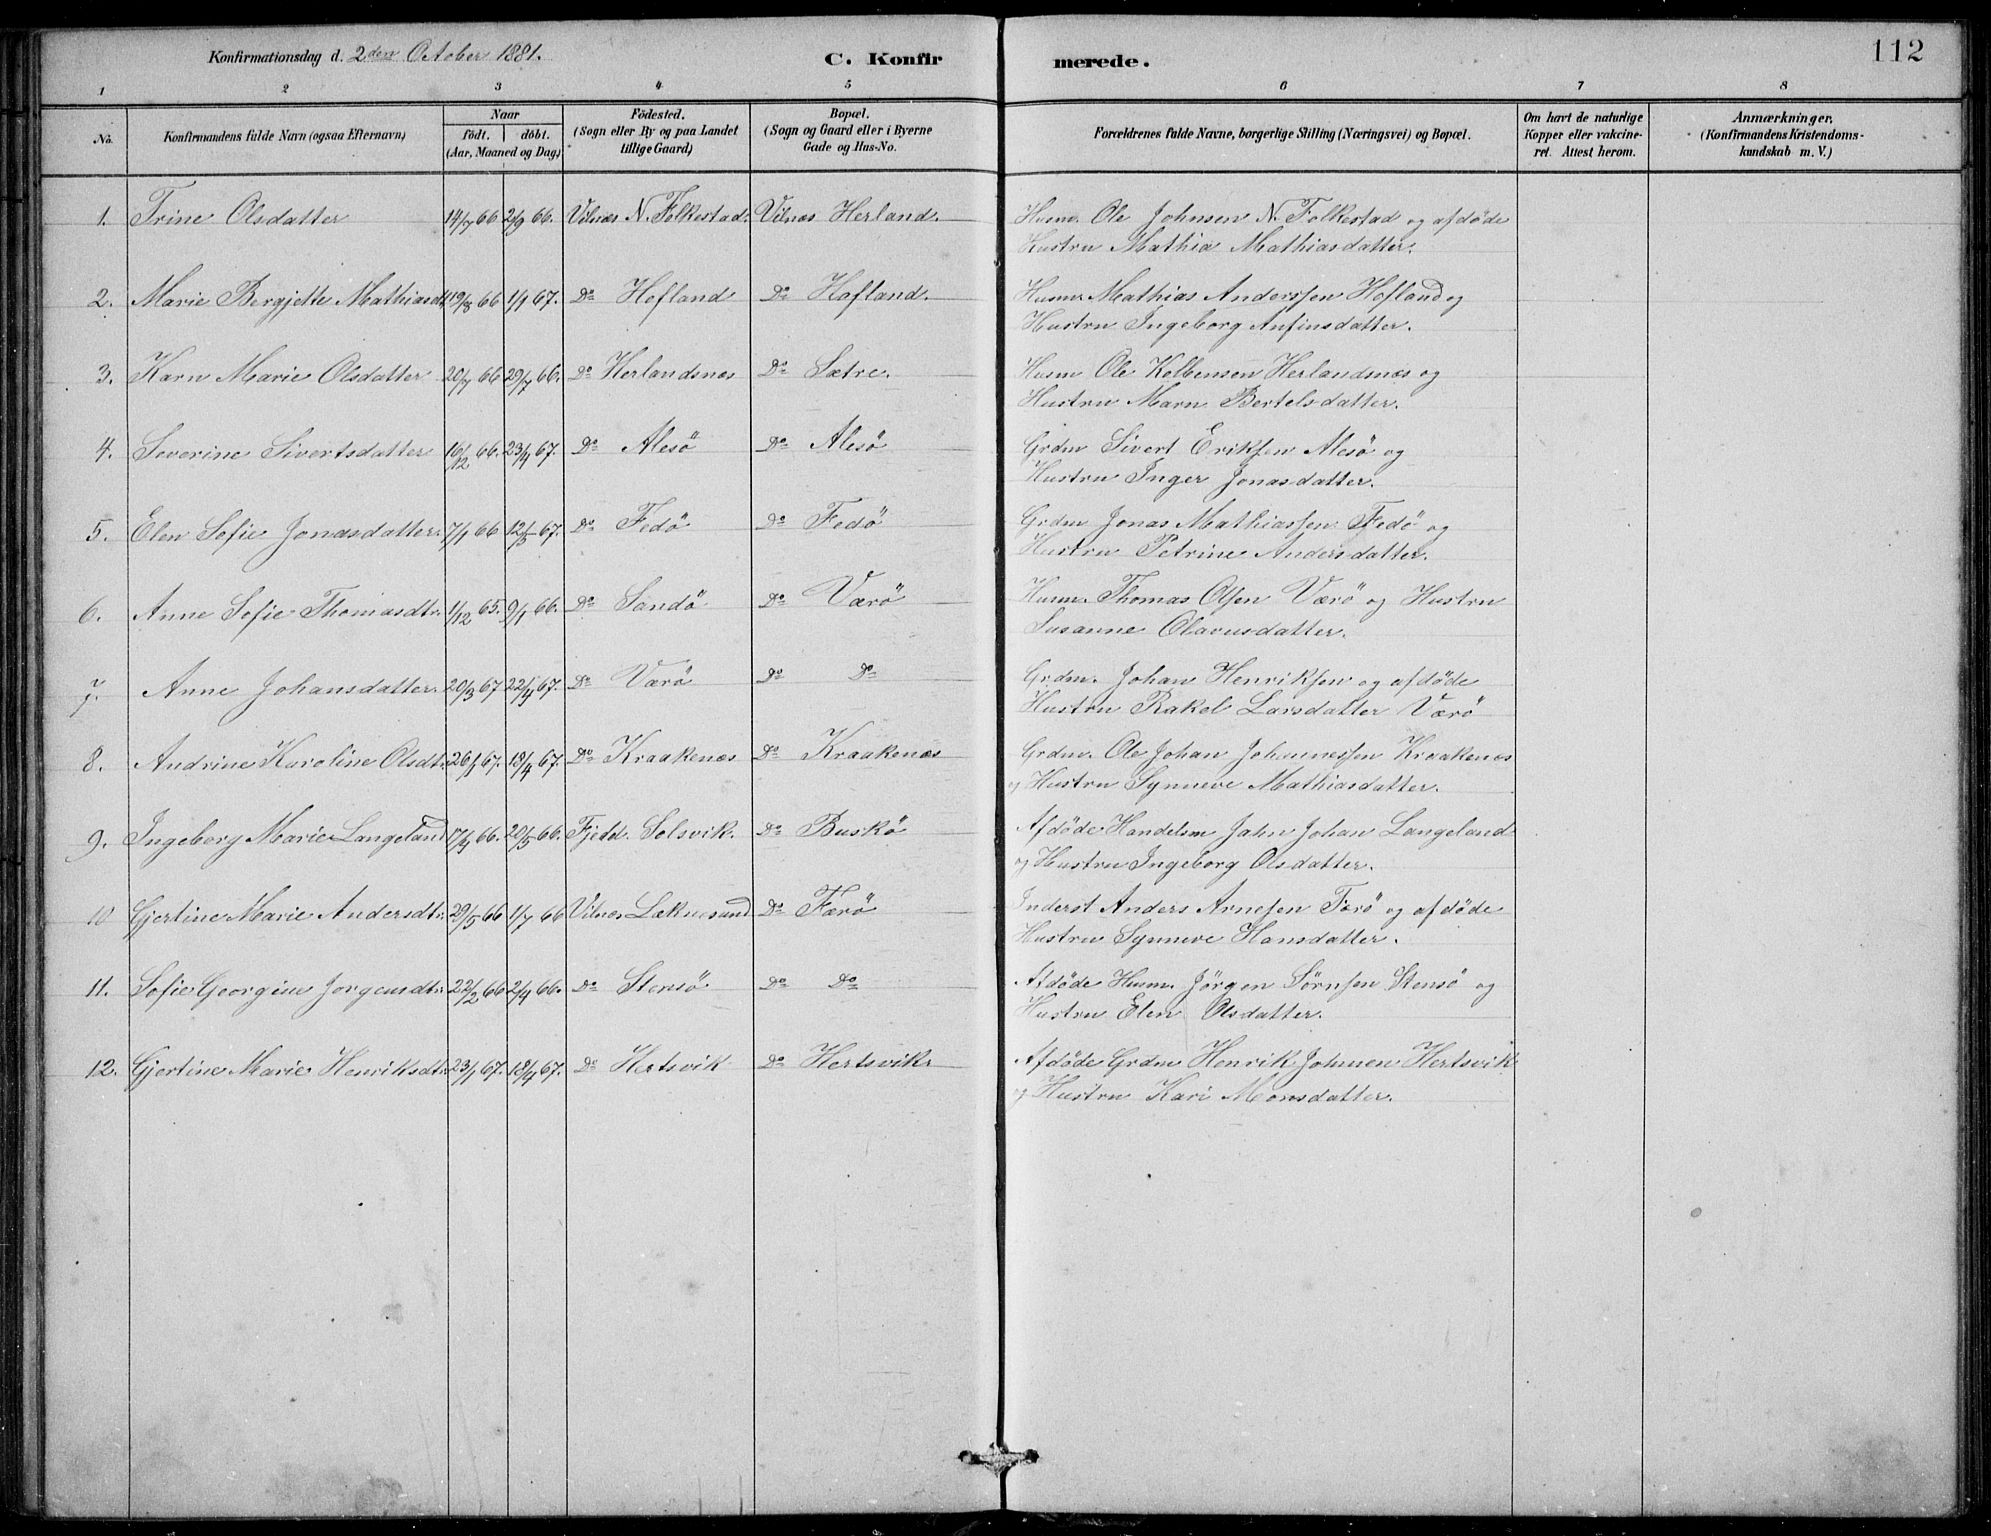 Konfirmationsdag d. 2den October 1881.
C. Konfirmerede.
112
1 2 3 4 5 6 7 8
No.
Konfirmandens fulde Navn (ogsaa Efternavn)
Naar
födt. döbt.
(Aar, Maaned og Dag)
Födested.
(Sogn eller By og paa Landet
tillige Gaard)
Bopæl.
(Sogn og Gaard eller i Byerne
Gade og Hus-No.
Forældrenes fulde Navne, borgerlige Stilling (Næringsvei) og Bopæl.
Om havt de naturlige
Kopper eller vakcine-
ret. Attest herom.
Anmærkninger.
(Konfirmandens Kristendoms-
kundskab m. V.)
1. Trine Olsdatter 14/7 66 2/9 66. Vilnæs N. Folkestad. Vilnæs Herland. Husm. Ole Johnsen N. Folkestad og afdöde
Hustru Mathia Mathiasdatter.
2. Marie Bergjette Mathiasdt. 19/8 66 1/1 67. Do Hofland Do Hafland. Husm. Mathias Anderssen Hofland og
Hustru Ingeborg Anfinsdatter.
3. Karn Marie Olsdatter 20/7 66 29/7 66. Do Herlandsnæs Do Sætre. Husm Ole Kolbensen Herlandsnæs og
Hustru Marn Bertelsdatter.
4. Severine Sivertsdatter 16/12 66. 23/4 67. Do Alesö Do Alesö Grdm Sivert Eriksen Alesö og
Hustru Inger Jonasdatter.
5. Elen Sofie Jonasdatter. 7/1 66 12/5 67. Do Fedö Do Fedö Grdm Jonas Mathiassen Fedö og
Hustru Petrine Andersdatter.
6. Anne Sofie Thomasdtr. 1/12 65. 9/1 66. Do Sandö Do Værö Husm. Thomas Olsen Værö og Hustru
Susanne Olavusdatter.
7. Anne Johansdatter. 20/3 67 22/4 67. Do Værö Do Do Grdm. Johan Henriksen og afdöde
Hustru Rakel Larsdatter Værö
8. Andrine Karoline Olsdtr. 26/1 67. 18/4 67. Do Kraakenæs Do Kraakenæs Grdm. Ole Johan Johannessen Kraakenæs
og Hustru Synneve Mathiasdatter.
9. Ingeborg Marie Langeland 17/4 66. 20/5 66. Fjedd. Solsvik. Do Buskö Afdöde Handelsm Jahn Johan Langeland
og Hustru Ingeborg Olsdatter.
10 Gjertine Marie Andersdtr. 29/5 66 1/7 66 Vilnæs Læknesund Do Færö Inderst Anders Arnesen Færö og afdöde
Hustru Synneve Hansdatter.
11. Sofie Georgine Jorgensdtr. 22/2 66 2/4 66. Do Stensö Do Do Afdöde Husm. Jörgen Sörnsen Stensö og
Hustru Elen Olsdatter.
12. Gjertine Marie Henriksdtr. 23/1 67. 18/4 67. Do Hertsvik Do Hertsvik Afdöde Grdm Henrik Johnsen Hertsvik
og Hustru Kari Monsdatter.